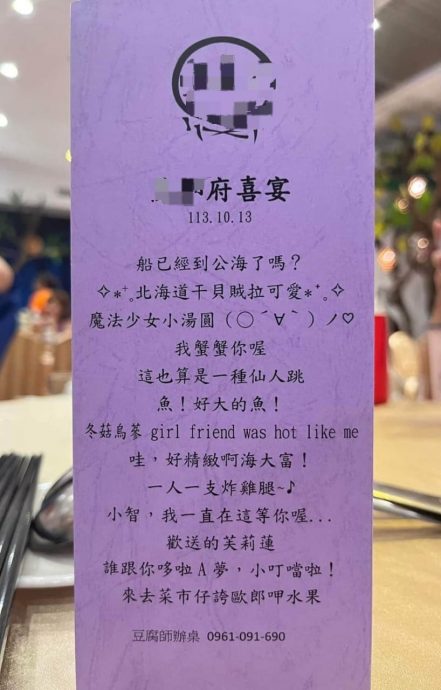 府喜宴
113.10.13
船已經到公海了嗎？
✧*⁺。北海道干貝賊拉可愛*⁺。✧
魔法少女小湯圓（◯ˊ∀ˋ）ノ♡
我蟹蟹你喔
這也算是一種仙人跳
魚！好大的魚！
冬菇烏蔘 girl friend was hot like me
哇，好精緻啊海大富！
一人一支炸雞腿~♪
小智，我一直在這等你喔...
歡送的芙莉蓮
誰跟你哆啦A夢，小叮噹啦！
來去菜市仔誇歐郎呷水果
豆腐師辦桌 0961-091-690